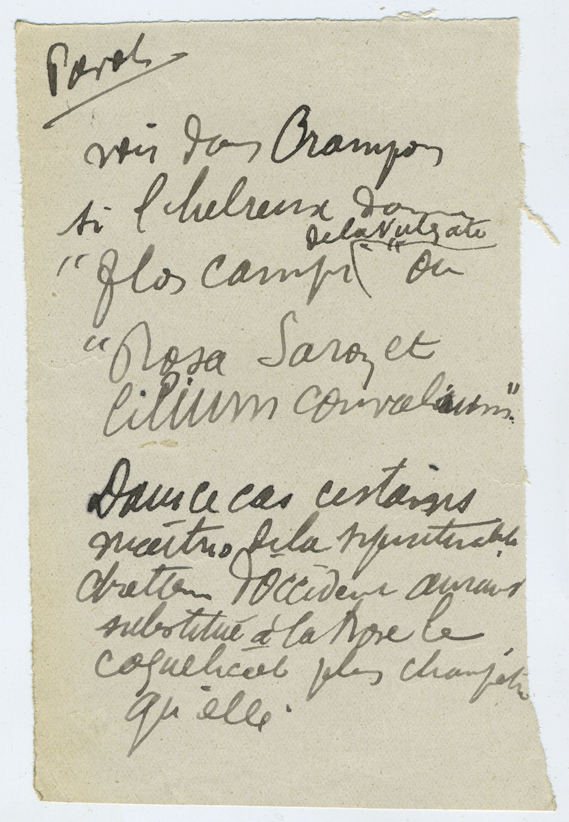 voir dans Crampon
si l'hébreux donne
de la Vulgate
"flos campi" ou
"Rosa Saron et
lilium convalium".
Dans ce cas certains
maîtres de la
chrétien d'Occident aurait
substitué à la Rose le
coquelicot plus champêtre
qu'elle.